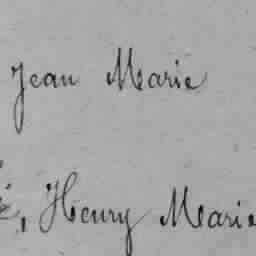 Jean Marie
, Henry Marie